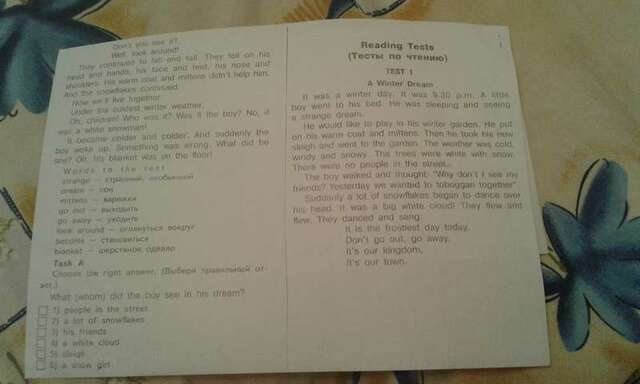 Reading Tests
(Тесты по чтению)
TEST 1
A Winter Dream
It was a winter day. It was 9.30 p.m. A little
boy went to his bed. He was sleeping and seeing
a strange dream.
He would like to play in his winter garden. He put
on his warm coat and mittens. Then he took his new
sleigh and went to the garden. The weather was cold,
windy and snowy. The trees were white with snow.
There were no people in the street...
The boy walked and thought: "Why don't I see my
friends? Yesterday we wanted to toboggan together"
Suddenly a lot of snowflakes began to dance over
his head. It was a big white cloud! They flew and
flew. They danced and sang:
It is the frostiest day today,
Don't go out, go away,
It's our kingdom,
It's our town.
Don't you see it?
Well, look around!
They continued to fall and fall. They fell on his
head and hands, his face and feet, his nose and
shoulders. His warm coat and mittens didn't help him.
And the snowflakes continued:
Now we'll live together
Under the coldest winter weather.
Oh, children! Who was it? Was it the boy? No, it
was a white snowman!
It became colder and colder. And suddenly the
boy woke up. Something was wrong. What did he
see? Oh, his blanket was on the floor!
Words to the text
strange — странный, необычный
dream — сон
mittens — варежки
go out — выходить
go away — уходить
look around — оглянуться вокруг
become — становиться
blanket — шерстяное одеяло
Task A
Choose the right answer. (Выбери правильный от-
вет.)
What (whom) did the boy see in his dream?
1) people in the street
2) a lot of snowflakes
3) his friends
4) a white cloud
5) sleigh
6) a snow girl